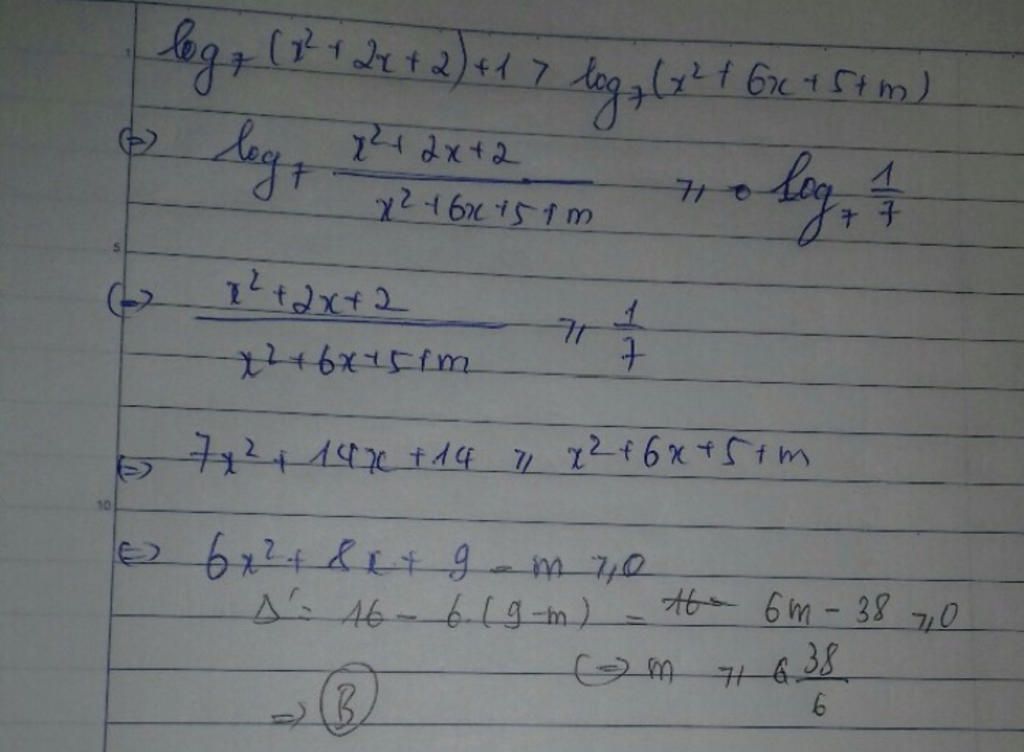 log₇ (x² + 2x + 2) + 1 > log₇ (x² + 6x + 5 + m)
(=) log₇ (x² + 2x + 2)/(x² + 6x + 5 + m) ⩾ log₇ 1/7
5
(=) (x² + 2x + 2)/(x² + 6x + 5 + m) ⩾ 1/7
(=) 7x² + 14x + 14 ⩾ x² + 6x + 5 + m
10
(=) 6x² + 8x + 9 - m ⩾ 0
Δ' = 16 - 6.(9-m) = 6m - 38 ⩾ 0
(=) m ⩾ 38/6
=) B